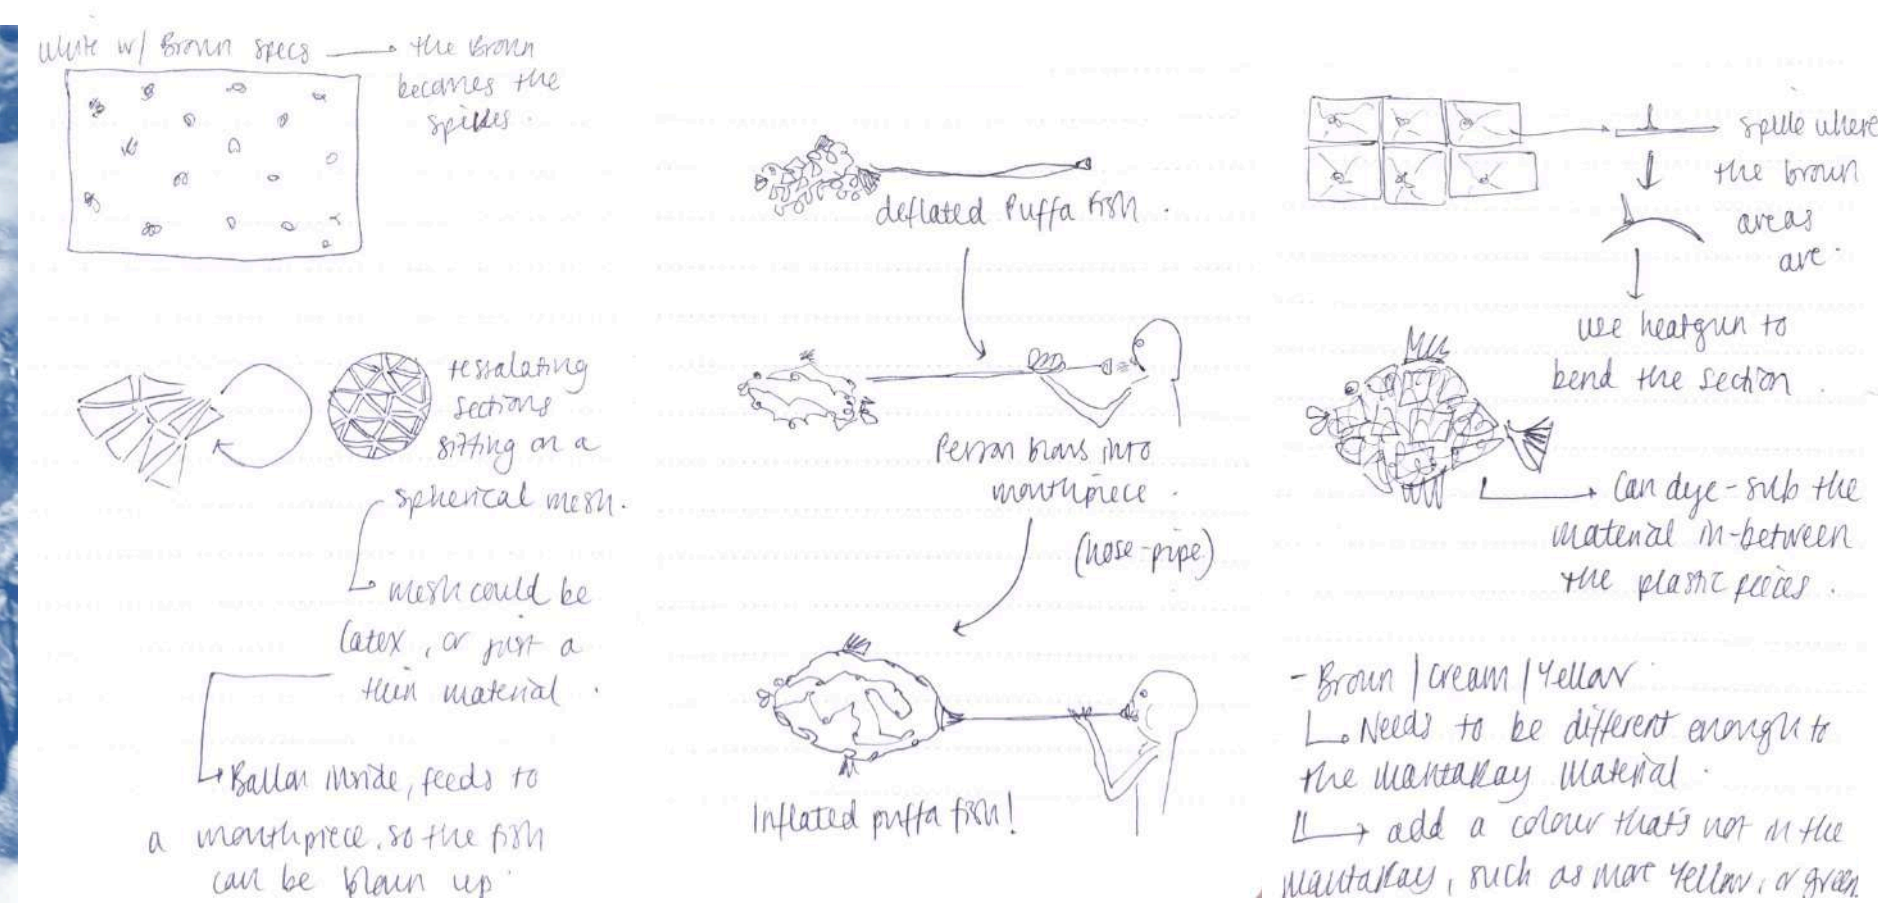 White w/ Brown specs → the Brown
becomes the
spikes.
tessalating
sections
sitting on a
spherical mesh.
mesh could be
latex, or just a
thin material.
Ballon inside, feeds to
a mouthpiece, so the fish
can be blown up.
deflated Puffa fish.
Person blows into
mouthpiece.
(hose-pipe)
Inflated puffa fish!
spike where
the brown
areas
are.
use heatgun to
bend the section.
Can dye-sub the
material in-between
the plastic pieces.
- Brown / Cream / Yellow
Needs to be different enough to
the MantaRay Material.
add a colour that's not in the
MantaRay, such as more yellow, or green.